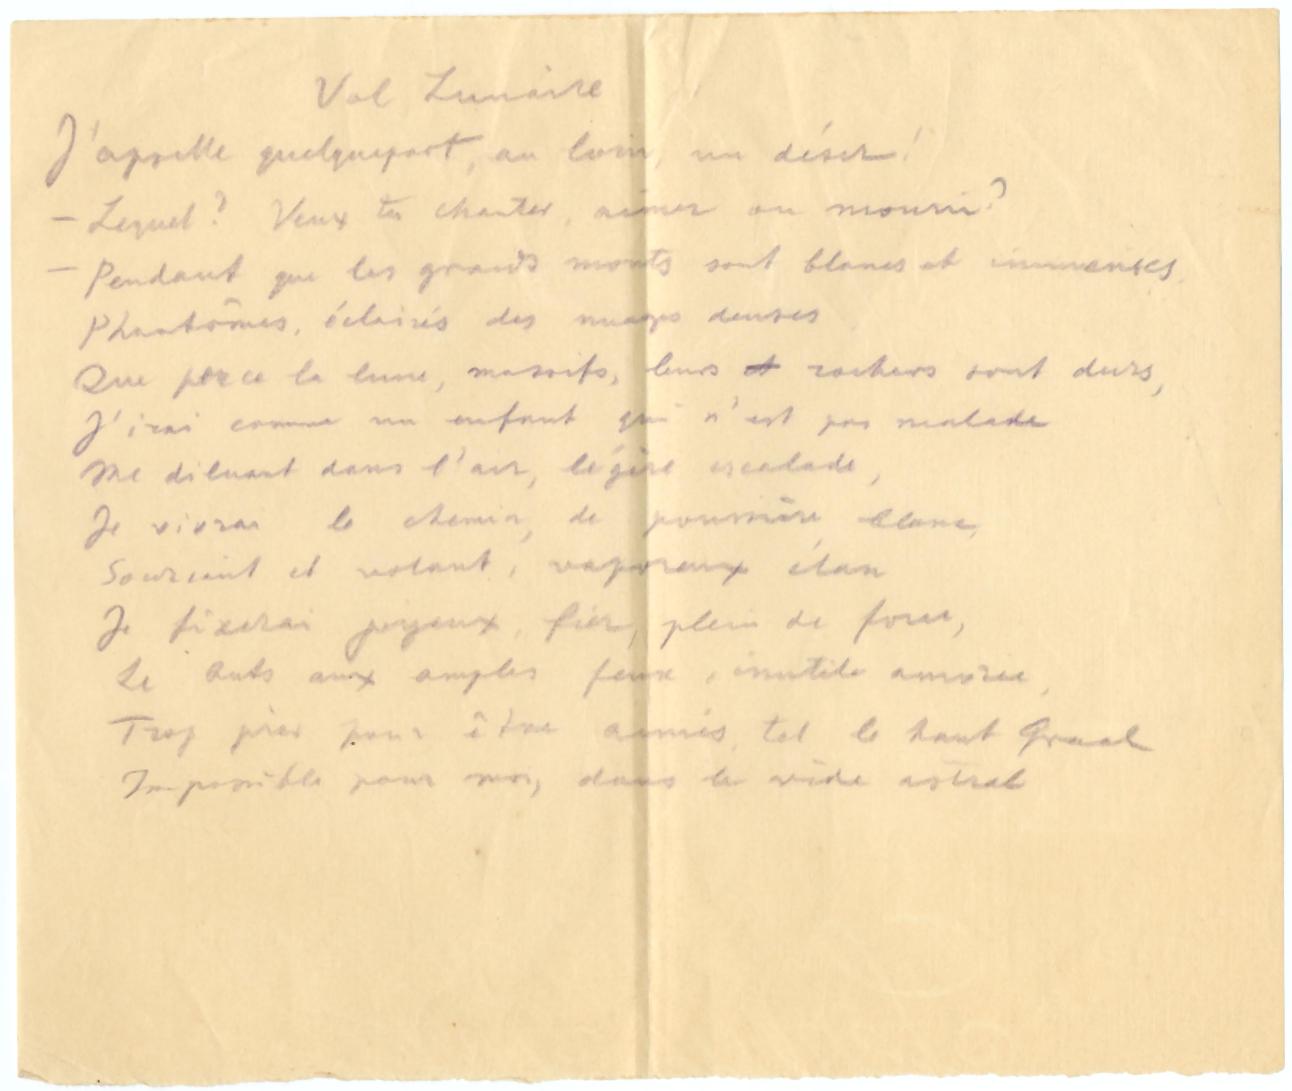 Vol Lunaire
J'appelle quelquepart, au loin, un désir!
- Lequel? Veux tu chanter, aimer ou mourir?
- Pendant que les grands monts sont blancs et immenses,
Phantômes, éclairés des nuages denses
Que perce la lune, massifs, leurs rochers sont durs,
J'irai comme un enfant qui n'est pas malade
Me diluant dans l'air, légère escalade,
Je vivrai le chemin, de poussière, blanc,
Souriant et volant, vaporeux élan
Je fixerai joyeux, fier, plein de force,
Le buts aux amples feux, inutile amorce,
Trop pour être aimés, tel le haut Graal
Impossible pour moi, dans le vide astral